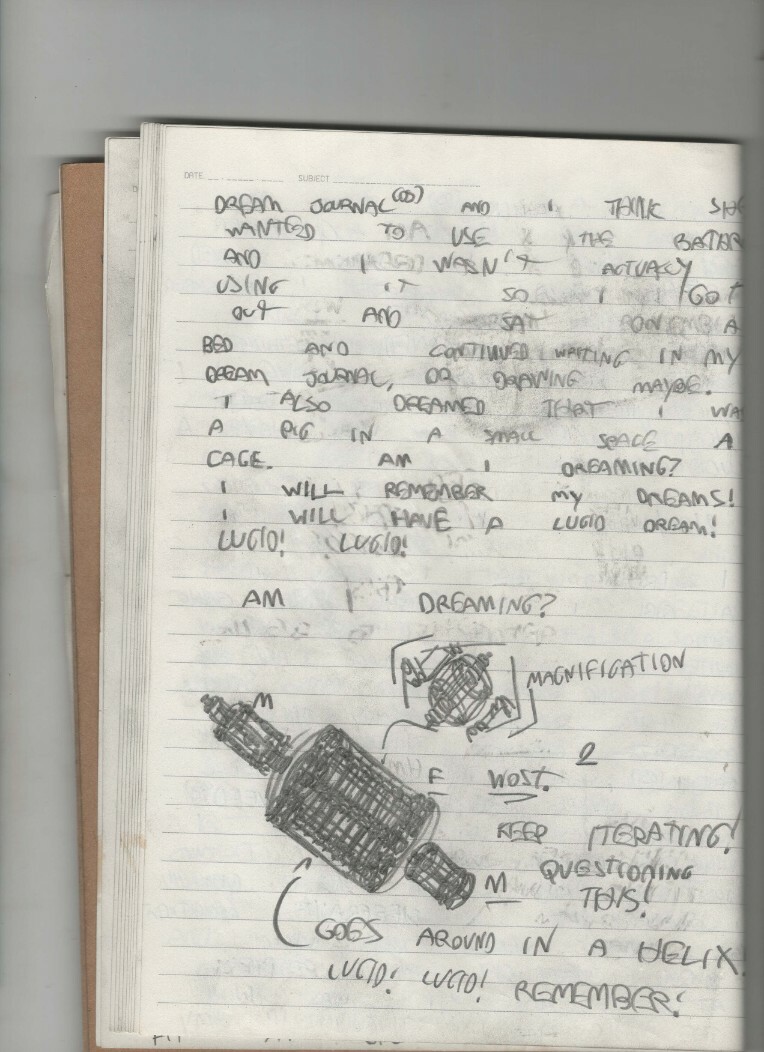 DATE SUBJECT
DREAM JOURNAL (OS) AND I THINK SHE
WANTED TO USE THE BATHR
AND I WASN'T ACTUALLY
USING IT SO I GOT
OUT AND SAT ON A
BED AND CONTINUED WRITING IN MY
DREAM JOURNAL, OR DRAWING MAYBE.
I ALSO DREAMED THAT I WA
A PIG IN A SMALL SPACE A
CAGE. AM I DREAMING?
I WILL REMEMBER MY DREAMS!
I WILL HAVE A LUCID DREAM!
LUCID! LUCID!
AM I DREAMING?
MAGNIFICATION
M
F WOST. 2
KEEP ITERATING!
QUESTIONING
M THIS!
GOES AROUND IN A HELIX!
LUCID! LUCID! REMEMBER!